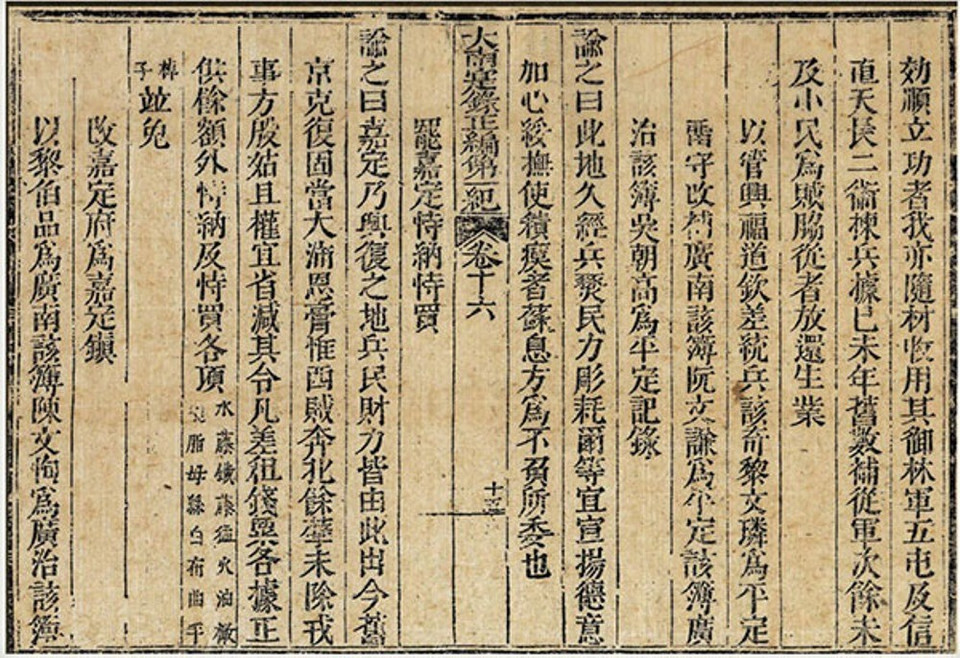 効順立功者我亦隨材收用其御林軍五屯及信
直天長二衞揀兵據己未年舊數補從軍次餘未
及小民爲賊脇從者放還生業
以管興福道欽差統兵該奇黎文璘爲平定
畱守改補廣南該簿阮文謙爲平定該簿廣
治該簿吳朝高爲平定記錄
諭之曰此地久經兵燹民力彫耗爾等宜宣揚德意
加心綏撫使積瘼者蘇息方爲不負所委也
大南寔錄正編第一紀 卷十六 十三
罷嘉定恃納恃買
諭之曰嘉定乃興復之地兵民財力皆由此出今舊
京克復固當大沛恩膏惟西賊奔北餘孽未除戎
事方殷姑且權宜省減其令凡差租錢粟各據正
供條額外恃納及恃買各項
水藤鐵藤猛火油橄
脂母緜白布曲平
棒
子
並免
改嘉定府爲嘉定鎮
以黎伯品爲廣南該簿陳文恂爲廣治該簿